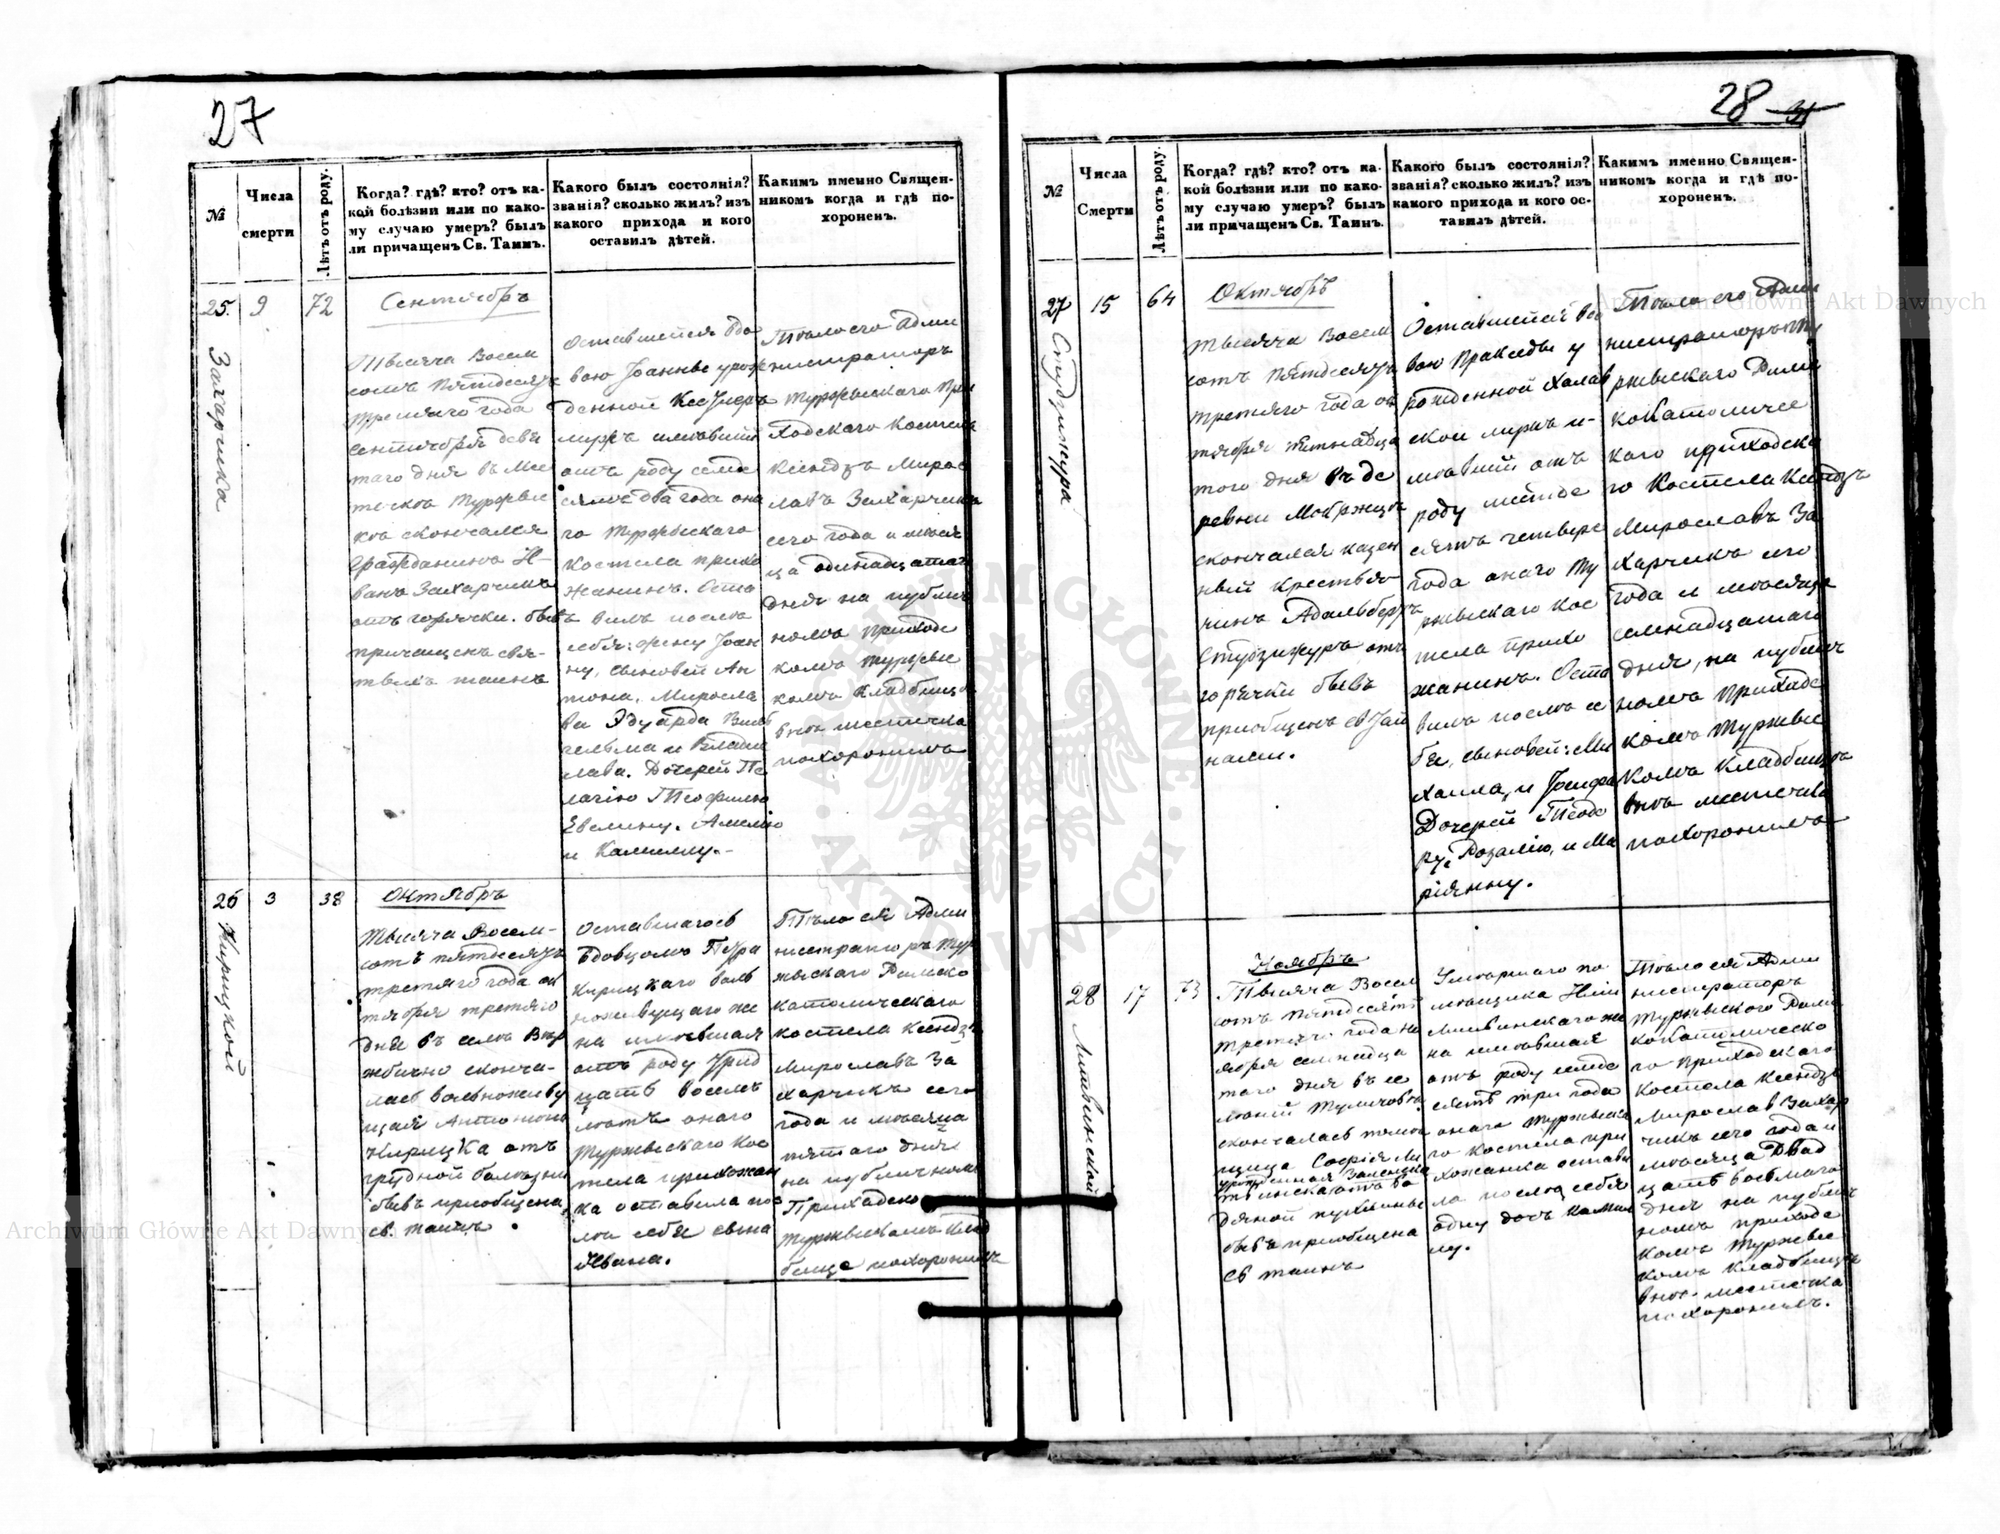 27
№
Числа
смерти
Лѣтъ отъ роду.
Когда? гдѣ? кто? отъ ка-
кой болѣзни или по како-
му случаю умеръ? былъ
ли причащенъ Св. Таинъ.
Какого былъ состоянія?
званія? сколько жилъ? изъ
какого прихода и кого
оставилъ дѣтей.
Какимъ именно Священ-
никомъ когда и гдѣ по-
хороненъ.
25.
9
72
Захарчика
Сентябрь
Тысяча Восем
сотъ Пятдесятъ
Третяго года
Сентября девя
таго дня въ Мѣ
скончался
Гражданинъ И-
ванъ Захарчикъ
отъ горячки. бывъ
причащенъ свя-
тыхъ таинъ
Оставшейся вдо
вою Іоанны урож
денной
имѣвшій
отъ роду семде
сятъ два года она
го Туржыскаго
костела прихо
жанинъ. Оста
вилъ послѣ
себя: жену Іоан
ну, сыновей Ан
тона, Мирослa
ва Эдуарда Виль
гельма и Влади
слава. Дочерей Пе
лагію Теофилю
Евелину. Амелію
и Камиллу.-
Тѣло его Адми
нистраторъ
Туржыскаго При
ходскаго Костела
Ксендзъ Миро
славъ Захарчикъ
сего года и мѣся
ца одинадцатаго
дня на публич
номъ приходс
комъ Туржыс
комъ Кладбищѣ
внѣ местечка
похоронилъ
26
3
38
Кирицкой
Октябрь
Тысяча Восем-
сотъ пятдесятъ
третяго года ок
тября третяго
дня въ селѣ Вер
жбично сконча-
лась вольноживу
щая Антонина
Кирицка отъ
грудной болѣзни
бывъ приобщена
св. таинъ.
Оставшагось
Вдовцомъ Петра
Кирицкаго воль
ноживущаго же
на имѣвшая
отъ роду Трид
цать восемъ
лѣтъ онаго
Туржыскаго Кос
тела прихожан
ка оставила пос
лѣ себя сына
Ивана.
Тѣло ея Адми
нистраторъ Тур
жыскаго Римско
католическаго
костела Ксендзъ
Мирославъ За
харчикъ сего
года и мѣсяца
пятаго дня
на публичномъ
Приходско
Туржыскомъ Клад
бище похоронилъ
28
№
Числа
Смерти
Лѣтъ отъ роду.
Когда? гдѣ? кто? отъ ка-
кой болѣзни или по како-
му случаю умеръ? былъ
ли причащенъ Св. Таинъ.
Какого былъ состоянія?
званія? сколько жилъ? изъ
какого прихода и кого ос-
тавилъ дѣтей.
Какимъ именно Священ-
никомъ когда и гдѣ по-
хороненъ.
27
15
64
Студзижура
Октябрь
Тысяча Восем
сотъ Пятдесятъ
третяго года ок
тября пятнадца
того дня въ де
ревни Мокржицъ
скончался казен
ный крестья
нинъ Адальбертъ
Студзижуръ отъ
горячки бывъ
приобщенъ св Тай
нами.
Оставшейся вдо
вою Пракседы у
рожденной Халав
ской мужъ и-
мѣвшій отъ
роду шейсде
сятъ четыре
года онаго Ту
ржыскаго Кос
тела прихо
жанинъ. Оста
вилъ послѣ се
бя, сыновей: Ми
хаила, и Іосифа
Дочерей Теодо
ру, Розалію, и Ма
ріянну.
Тѣло его Адми
нистраторъ Ту
ржыскаго Римс
кокатоличес
каго приходска
го Костела Ксендзъ
Мирославъ За
харчикъ его
года и мѣсяца
семнадцатаго
дня, на публич
номъ Приходс
комъ Туржыс
комъ Кладбищѣ
внѣ местечка
похоронилъ
28
17
73
Литвинской
Ноябрь
Тысяча Восем
сотъ пятдесятъ
третяго года но
ября семнадца
того дня въ се
леніи Туличовѣ
скончалась помѣ
щица Софія Ли
урожденная Залеская
твинска отъ во
дяной пухлины
бывъ приобщена
св таинъ
Умершаго по
мѣщика
Литвинскаго же
на имѣвшая
отъ роду семде
сятъ три года
онаго Туржыска
го костела при
хожанка остави
ла послѣ себя
одну дочь Камил
лу.
Тѣло ея Адми
нистраторъ
Туржыскаго Римс
кокатолическо
го Приходскаго
Костела Ксендзъ
Мирославъ Захар
чикъ сего года и
мѣсяца Двад
цать восьмаго
дня на публич
номъ приходс
комъ Туржыс
комъ Кладбищѣ
внѣ местечка
похоронилъ.
Archiwum Główne Akt Dawnych
Archiwum Główne Akt Dawnych
ARCHIWUM GŁÓWNE
AKT DAWNYCH